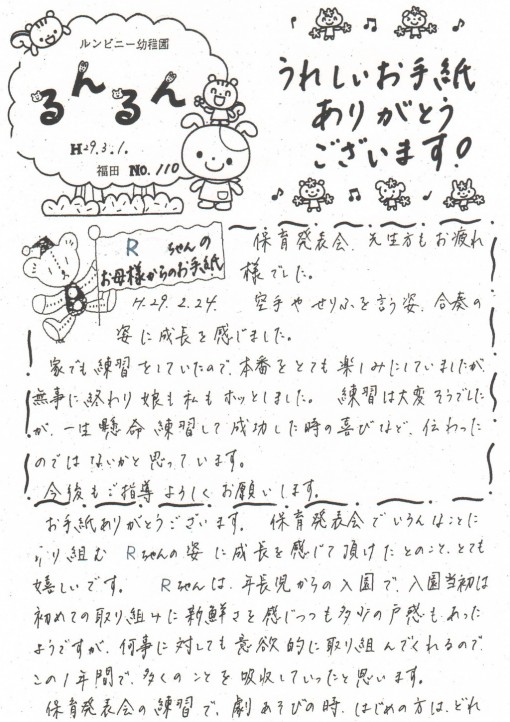 ルンビニー幼稚園
るんるん
H29.3.1.
福田 No.110
うれしいお手紙
ありがとう
ございます!
Rちゃんの
お母様からのお手紙
H.29.2.24.
保育発表会、先生方もお疲れ
様でした。
空手や せりふを言う姿、合奏の
姿に成長を感じました。
家でも練習をしていたので、本番をとても楽しみにしていましたが、
無事に終わり娘も私もホッとしました。 練習は大変そうでした
が、一生懸命練習して成功した時の喜びなど、伝わった
のではないかと思っています。
今後もご指導よろしくお願いします。
お手紙ありがとうございます。 保育発表会でいろんなことに
取り組む Rちゃんの姿に成長を感じて頂けたとのこと、とても
嬉しいです。 Rちゃんは、年長児からの入園で、入園当初は
初めての取り組みに新鮮さを感じつつも多少の戸惑もあった
ようですが、何事に対しても意欲的に取り組んでくれるので
この1年間で、多くのことを吸収していったと思います。
保育発表会の練習で、劇あそびの時、はじめの方は、どれ